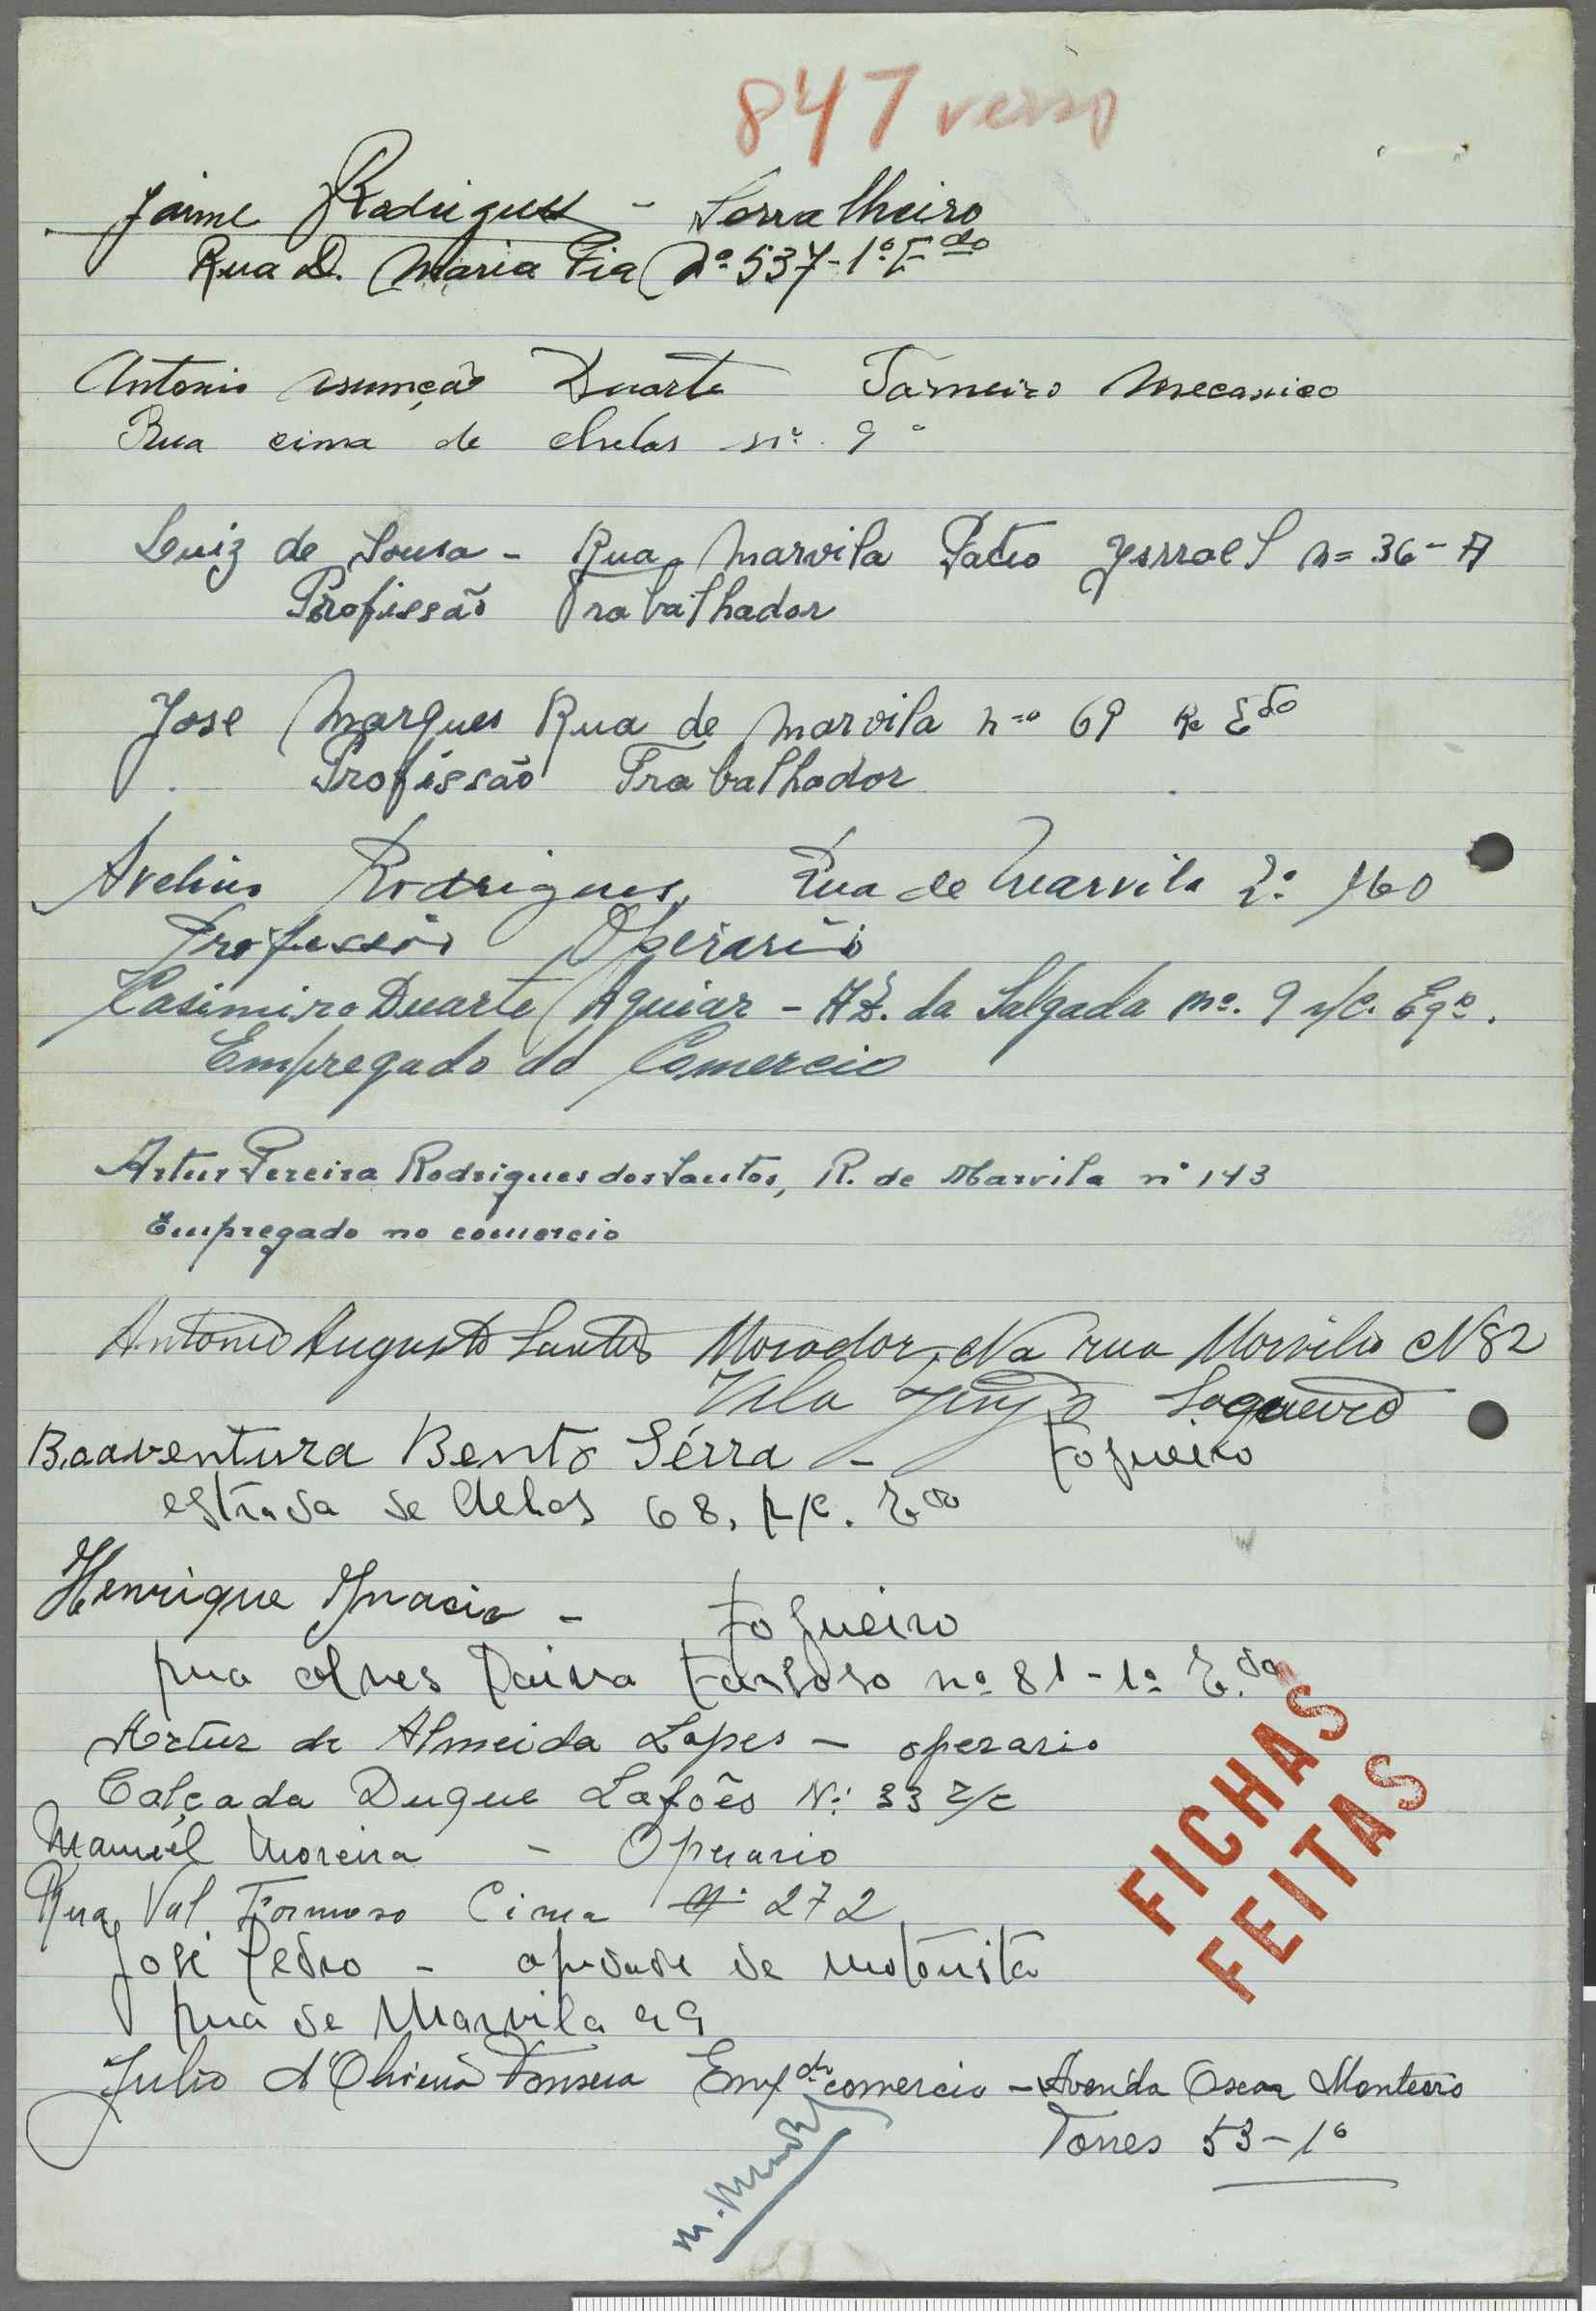 847 verso
Jaime Rodrigues - Serralheiro
Rua D. Maria Pia Nº 537-1º E.do
Antonio Asunção Duarte Torneiro Mecanico
Rua cima de chelas nº 9
Luiz de Sousa - Rua Marvila Pateo n= 36-A
Profissão Trabalhador
Jose Marques Rua de Marvila nº 69 Rc Edo
Profissão Trabalhador
Avelino Rodrigues, Rua de Marvila Nº 160
Professão Operario
Casimiro Duarte Aguiar - Az. da Salgada nº. 9 r/c. Eqº.
Empregado do Comercio
Artur Pereira Rodrigues dos Santos, R. de Marvila nº 143
Empregado no comercio
Antonio Augusto Santos Morador Na rua Morvila N 82
Vila Fogueiro
Boaventura Bento Sérra - Fogueiro
estrada de Chelas 68, r/c. E.do
Henrique Ynacio - Fogueiro
rua Alves Paiva nº 81-1º E.do
Artur de Almeida Lopes - operario
Calçada Duque Lafões Nº 33 r/c
Manuel Moreira - Operario
Rua Val Formoso Cima Nº 272
José Pedro - ajudade de motorista
rua de Marvila 99
Julio d'Oliveira Fonseca Empdo comercio - Avenida Oscar Monteiro
Torres 53-1º
FICHAS
FEITAS